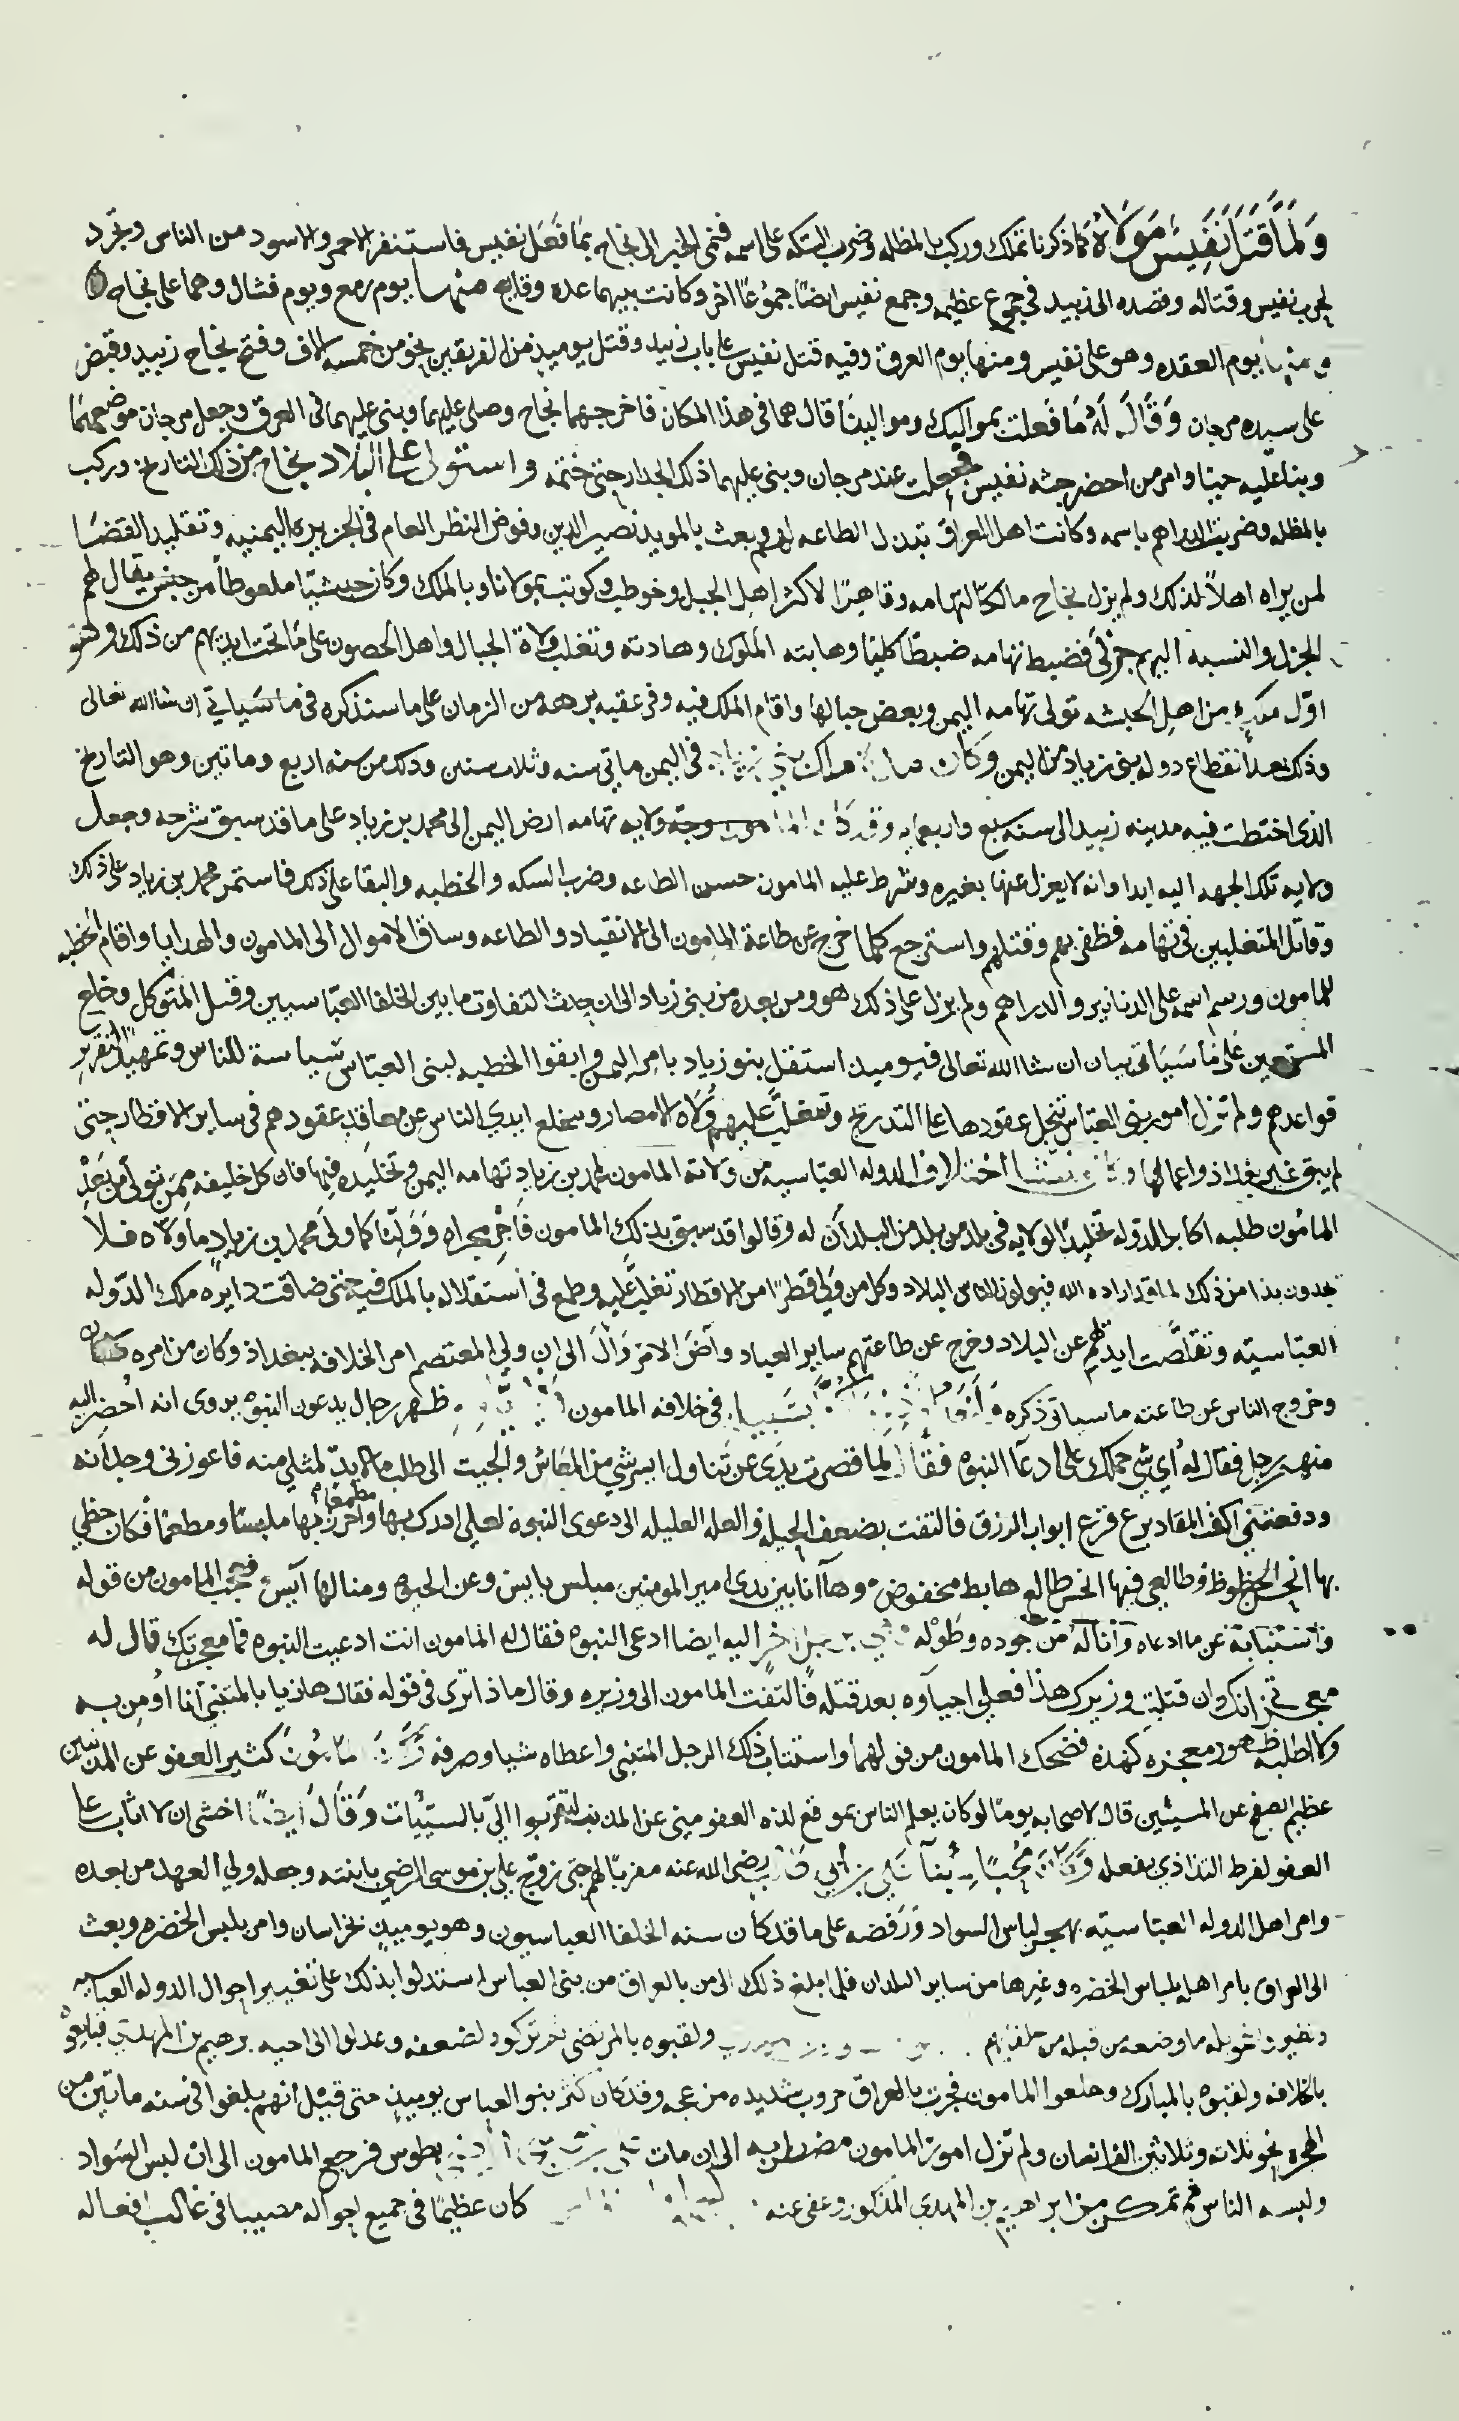 ولما قتل نفيس مولاه كما ذكرنا تملك وركب بالمظله وضرب السكه على اسمه فنمى الخبر الى نجاح بما فعل نفيس فاستنفر الاحمر والاسود من الناس وتجرد
لحرب نفيس وقتاله وقصده الى زبيد في جموع عظيمه وجمع نفيس ايضا جموعا اخر وكانت بينهما عده وقايع منها يوم رمع ويوم فشال وهما على نجاح
ومنها يوم العقده وهو على نفيس ومنها يوم العرق وفيه قتل نفيس على باب زبيد وقتل يوميذ من الفريقين نحو من خمسه الاف وفتح نجاح زبيد وقبض
على سيده مرجان وقال له ما فعلت بمواليك وموالينا قال هما في هذا المكان فاخرجهما نجاح وصلى عليهما وبنى عليهما في العرق وجعل مرجان موضعهما
وبنا عليه حيا وامر من احضر جثه نفيس فجعلت عند مرجان وبنى عليهما ذلك الجدار حتى ختمه واستولى على البلاد نجاح من ذلك التاريخ وركب
بالمظله وضربت الدراهم باسمه وكاتب اهل العراق ببذل الطاعه لهم وبعث بالمويد نصير الدين وفوض النظر العام في الجزيره اليمنيه وتقليد القضا
لمن يراه اهلا لذلك ولم يزل نجاح مالكا لتهامه وقاهرا لاكثر اهل الجبل وخوطب وكوتب بمولانا وبالملك وكان حبشيا من جنس يقال لهم
الجزل والنسبه اليهم جزلي فضبط تهامه ضبطا كليا وهابته الملوك وهادته وتغلب ولاة الجبال واهل الحصون على ما تحت ايديهم من ذلك وهو
اول ملك من اهل الحبشه تولى تهامه اليمن وبعض جبالها واقام الملك فيه وفي عقبه برهه من الزمان على ما سنذكره في ما سياتي ان شا الله تعالى
وذلك بعد انقطاع دوله بني زياد من اليمن وكان ملك بني زياد في اليمن ماتي سنه وثلاث سنين وذلك من سنه اربع وماتين وهو التاريخ
الذى اختطت فيه مدينه زبيد الى سنه سبع واربعمايه وقد كان المامون وجه ولايه تهامه ارض اليمن الى محمد بن زياد على ما قد سبق شرحه وجعل
ولايه تلك الجهه اليه ابدا وانه لا يعزل عنها بغيره وشرط عليه المامون حسن الطاعه وضرب السكه والخطبه والبقا على ذلك فاستمر محمد بن زياد على ذلك
وقاتل المتغلبين في تهامه فظفر بهم وقتلهم واسترجع كلما خرج عن طاعة المامون الى الانقياد والطاعه وساق الاموال الى المامون والهدايا واقام الخطبه
للمامون ورسم اسمه على الدنانير والدراهم ولم يزل على ذلك هو ومن بعده من بني زياد الى ان حدث التفاوت ما بين الخلفا العباسيين وقتل المتوكل وخلع
المستعين على ما سياتي بيانه ان شا الله تعالى فيوميذ استقل بنو زياد بامر اليمن وابقوا الخطبه لبنى العباس سياسة للناس وتمهيدا لتقرير
قواعدهم ولم تزل امور بني العباس تنحل عقودها على التدريج وتتغلب عليهم ولاه الامصار وتخلع ايدي الناس عن معاقد عقودهم في ساير الاقطار حتى
لم يبق غير بغداذ واعمالها وكان منشا اختلاف الدوله العباسيه من ولاته المامون لمحمد بن زياد تهامه اليمن وتخليده فيها فان كل خليفه ممن تولى من بعد
المامون طلبه اكابر الدوله تخليد الولايه في بلد من البلدان له وقالوا قد سبق بذلك المامون فاجر مجراه وولنا كما ولى محمد بن زياد ما ولاه فلا
يجدون بدا من ذلك لما قد اراده الله فيولون الناس البلاد وكل من ولي قطرا من الاقطار تغلب عليه وطمع في استقلاله بالملك فيه حتى ضاقت دايره ملك الدوله
العباسيه وتقلصت ايديهم عن البلاد وخرج عن طاعتهم ساير العباد وآض الامر وآل الى ان ولي المعتصم امر الخلافه ببغداذ وكان من امره
وخروج الناس عن طاعته ما سياتي ذكره في خلافه المامون ظهر رجال يدعون النبوه يروى انه احضر اليه
منهم رجل فقال له اي شي حملك على ادعا النبوه فقال لما قصرت يدي عن تناول ايسر شي من المعاش والجيت الى طلب ما لا بد لمثلي منه فاعوزني وجدانه
ودفعتني اكف المقادير عن قرع ابواب الرزق فالتفت بضعف الحيله والعله العليله الى دعوى النبوه لعلي ادرك بها واحرز بها ملبسا ومطعما فكان حظي
بها انحس الحظوظ وطالعي فيها انحس طالع هابط مخفوض وها انا بين يدي امير المومنين مبلس يايس وعن الحيوه ومنالها آيس فعجب المامون من قوله
واستتابه عن ما ادعاه واناله من جوده وطوله واتي برجل اخر اليه ايضا ادعى النبوه فقال له المامون انت ادعيت النبوه فما معجزتك قال له
معجزتي انك ان قتلت وزيرك هذا فعلي احياوه بعد قتله فالتفت المامون الى وزيره وقال ماذا ترى في قوله فقال هازيا بالمتنبي انا اومن به
ولا اطلبه ظهور معجزه كهذه فضحك المامون من قولهما واستتاب ذلك الرجل المتنبي واعطاه شيا وصرفه وكان المامون كثير العفو عن المذنبين
عظيم الصفح عن المسيئين قال لاصحابه يوما لو كان يعلم الناس بموقع لذه العفو مني عن المذنب لتقربوا الي بالسيئات وقال ايضا اخشى ان لا اثاب على
العفو لفرط التذاذي بفعله وكان محبا لابنا علي بن ابي طالب رضى الله عنه مقربا لهم حتى زوج علي بن موسى الرضي بابنته وجعله ولي العهد من بعده
وامر اهل الدوله العباسيه بهجر لباس السواد ورفضه على ما قد كان سنه الخلفا العباسيون وهو يوميذ بخراسان وامر بلبس الخضره وبعث
الى العراق بامر اهله بلباس الخضره وغيرها من ساير البلدان فلما بلغ ذلك الى من بالعراق من بني العباس استدلوا بذلك على تغيير احوال الدوله العباسيه
ما وضعه من قبله من خلفايهم ولقبوه بالمرتضى ثم تركوه لضعفه وعدلوا الى اخيه ابرهيم بن المهدي فبايعوه
بالخلافه ولقبوه بالمبارك وخلعوا المامون فجرت بالعراق حروب شديده مزعجه وقد كان كثر بنو العباس يوميذ حتى قيل انهم بلغوا في سنه ماتين من
الهجره نحو ثلاث وثلاثين الف انسان ولم تزل امور المامون مضطربه الى ان مات علي بن موسى الرضي بطوس فرجع المامون الى ان لبس السواد
ولبسه الناس ثم تمكن من ابراهيم بن المهدي المذكور وعفى عنه كان عظيما في جميع احواله مصيبا في غالب افعاله